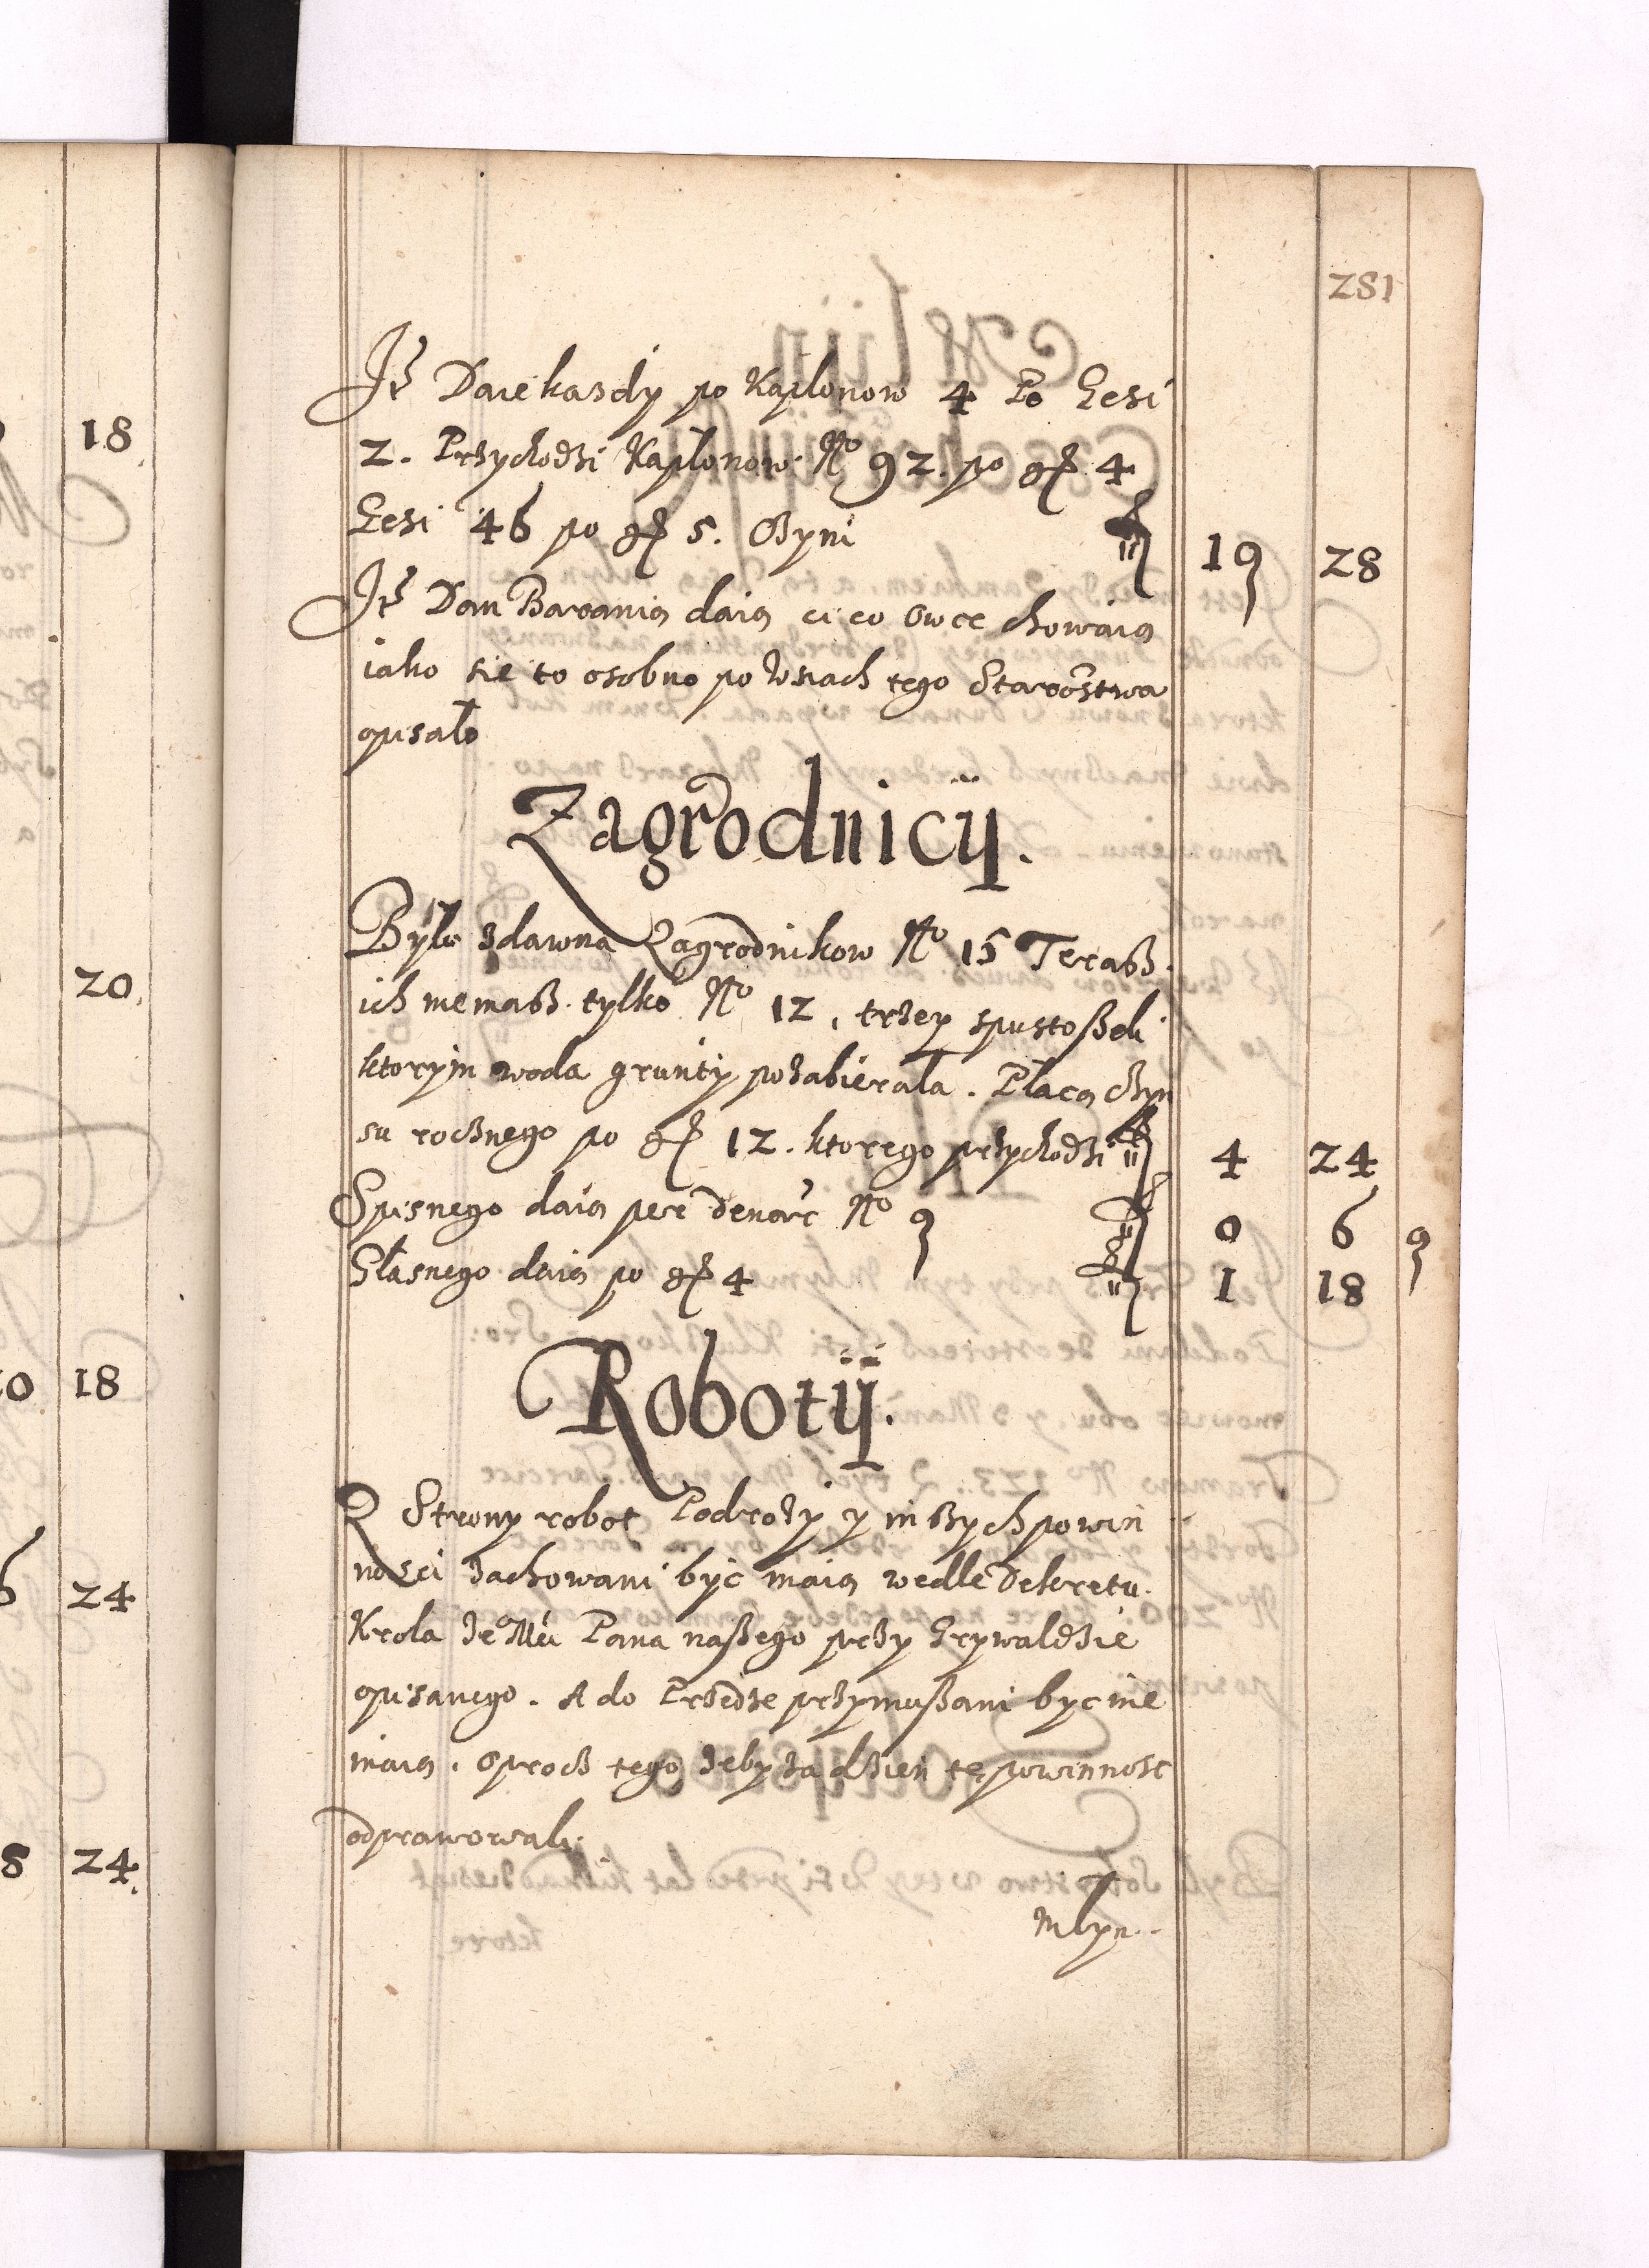 281
Itē Daie kasdy po Kapłonow 4 Po Gesi
2. Przychodzi Kapłonow. No 92. po gr 4
Gesi 46 po gr 5. Czyni fl 19 28
Itē Dań Barania daią ci co owce chowaią
iako sie to osobno po wsiach tego Starostwa
opisało
Zagrodnicÿ.
Było zdawna Zagrodnikow No 15 Terasz.
ich niemasz. tylko No 12, trzey spustoszeli
ktorym woda grunty pozabierała. Płacą czyn
su rocznego po gr 12. ktorego przychodzi fl 4 24
Spisnego daią per denar No 9 fl 0 6 9
Głasnego daią po gr 4 fl 1 18
Robotÿ.
Z Strony robot Podrozy y inszych powin
nosci zachowani być maią wedle Dekretu.
Krola Je Mći Pana naszego przy Grywaldzie
opisanego. A do Przedze przymuszani byc nie
maią. oprocz tego zeby za dzien tę powinnosc
odprawowali.
Młyn.
18
20
18
24
8 24